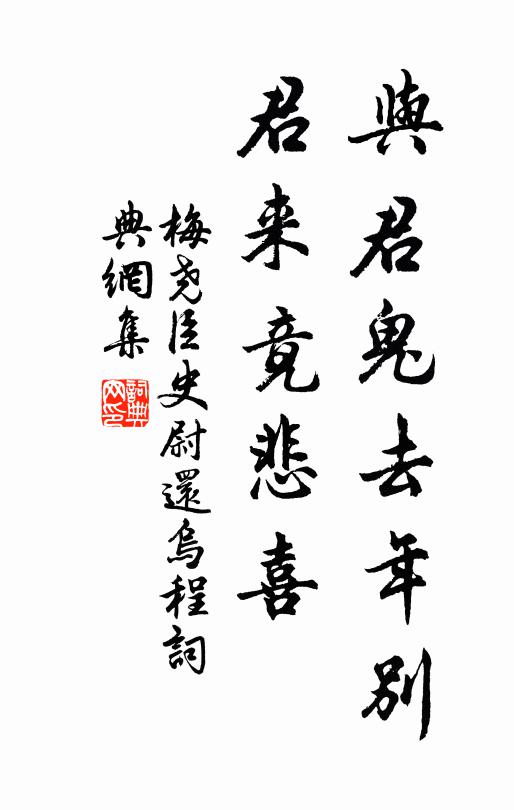 與君鬼去年別
君来竟悲喜
梅尭臣史尉還烏程詞
典網集
詞典網印